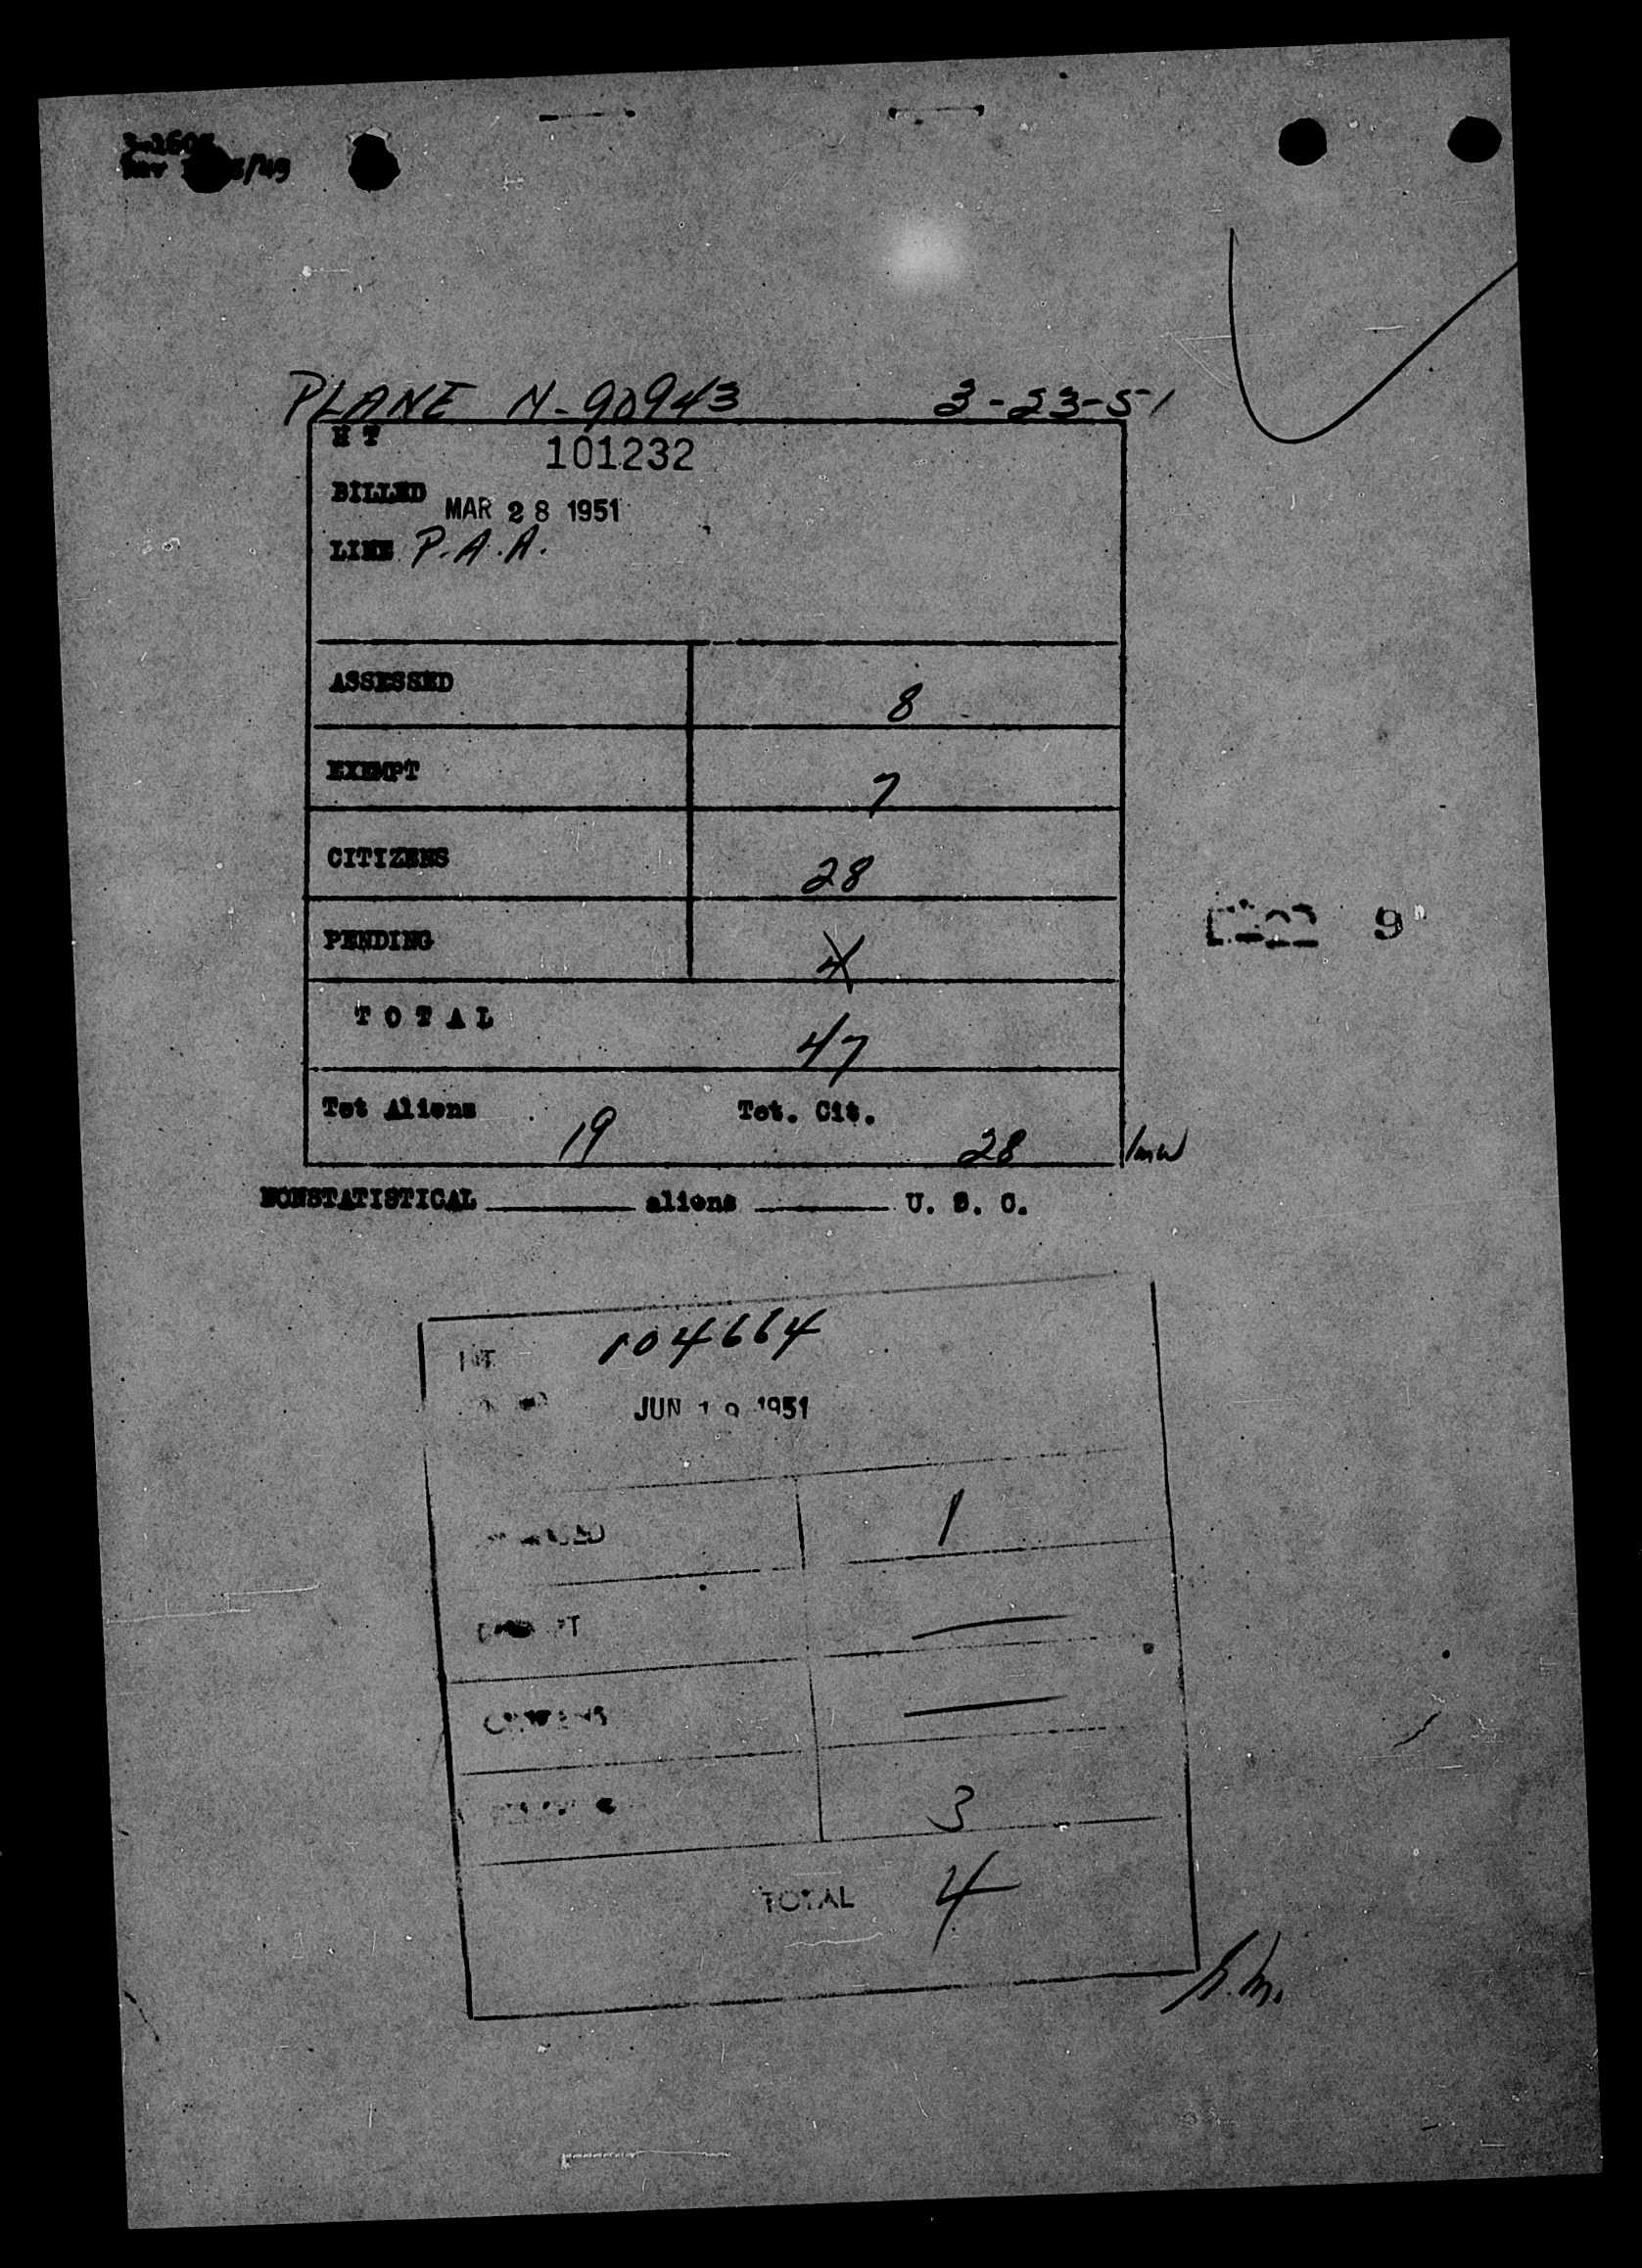 3-1605
PLANE N-90943 3-23-51
H T 101232
BILLED MAR 28 1951
LINE P.A.A.
ASSESSED 8
EXEMPT 7
CITIZENS 28
PENDING 4
TOTAL 47
Tot Aliens 19 Tot. Cit. 28 lmw
NONSTATISTICAL aliens U. S. C.
HT 104664
JUN 19 1951
1
EXEMPT
CITIZENS
PENDING 3
TOTAL 4